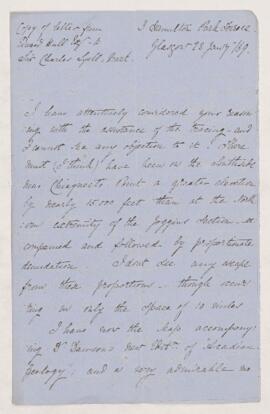 Copy of letter from
Hull Esq. to
Sir Charles Lyell, Bart.
3 Hamilton Park Terrace
Glasgow 28 Jany /69.
I have attentively considered your reason
ing with the assistance of the tracing – and
I cannot see any objection to it! There
must (I think) have been on the
near Chiegnecto Point a greater elevation
by nearly 15,000 feet than at the North
ern extremity of the Joggins section – ac
companied and followed by proportionate
denudation. I don't see any escape
from these proportions – though occur
ing in only the space of 10 miles
I have now the Map accompany
ing Dr Dawson's new Editn. of "Acadian
Geology"; and a very admirable